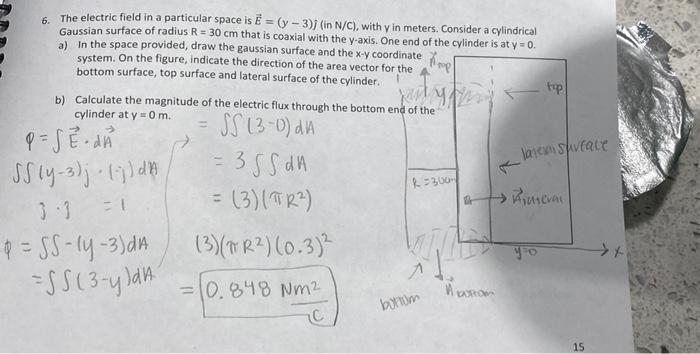 6. The electric field in a particular space is E⃗ = (y − 3)ĵ (in N/C), with y in meters. Consider a cylindrical
Gaussian surface of radius R = 30 cm that is coaxial with the y-axis. One end of the cylinder is at y = 0.
a) In the space provided, draw the gaussian surface and the x-y coordinate
system. On the figure, indicate the direction of the area vector for the
bottom surface, top surface and lateral surface of the cylinder.
b) Calculate the magnitude of the electric flux through the bottom end of the
cylinder at y = 0 m.
φ = ∫ E⃗ · dA⃗
∫∫(y-3)j · (-j) dA
j · j = 1
φ = ∫∫-(y-3)dA
= ∫∫(3-y)dA
= ∫∫(3-0) dA
= 3 ∫∫ dA
= (3)(πR²)
(3)(πR²)(0.3)²
= 0.848 Nm²/C
top
y
top
lateral surface
R=30cm
y=0
x
bottom
bottom
15